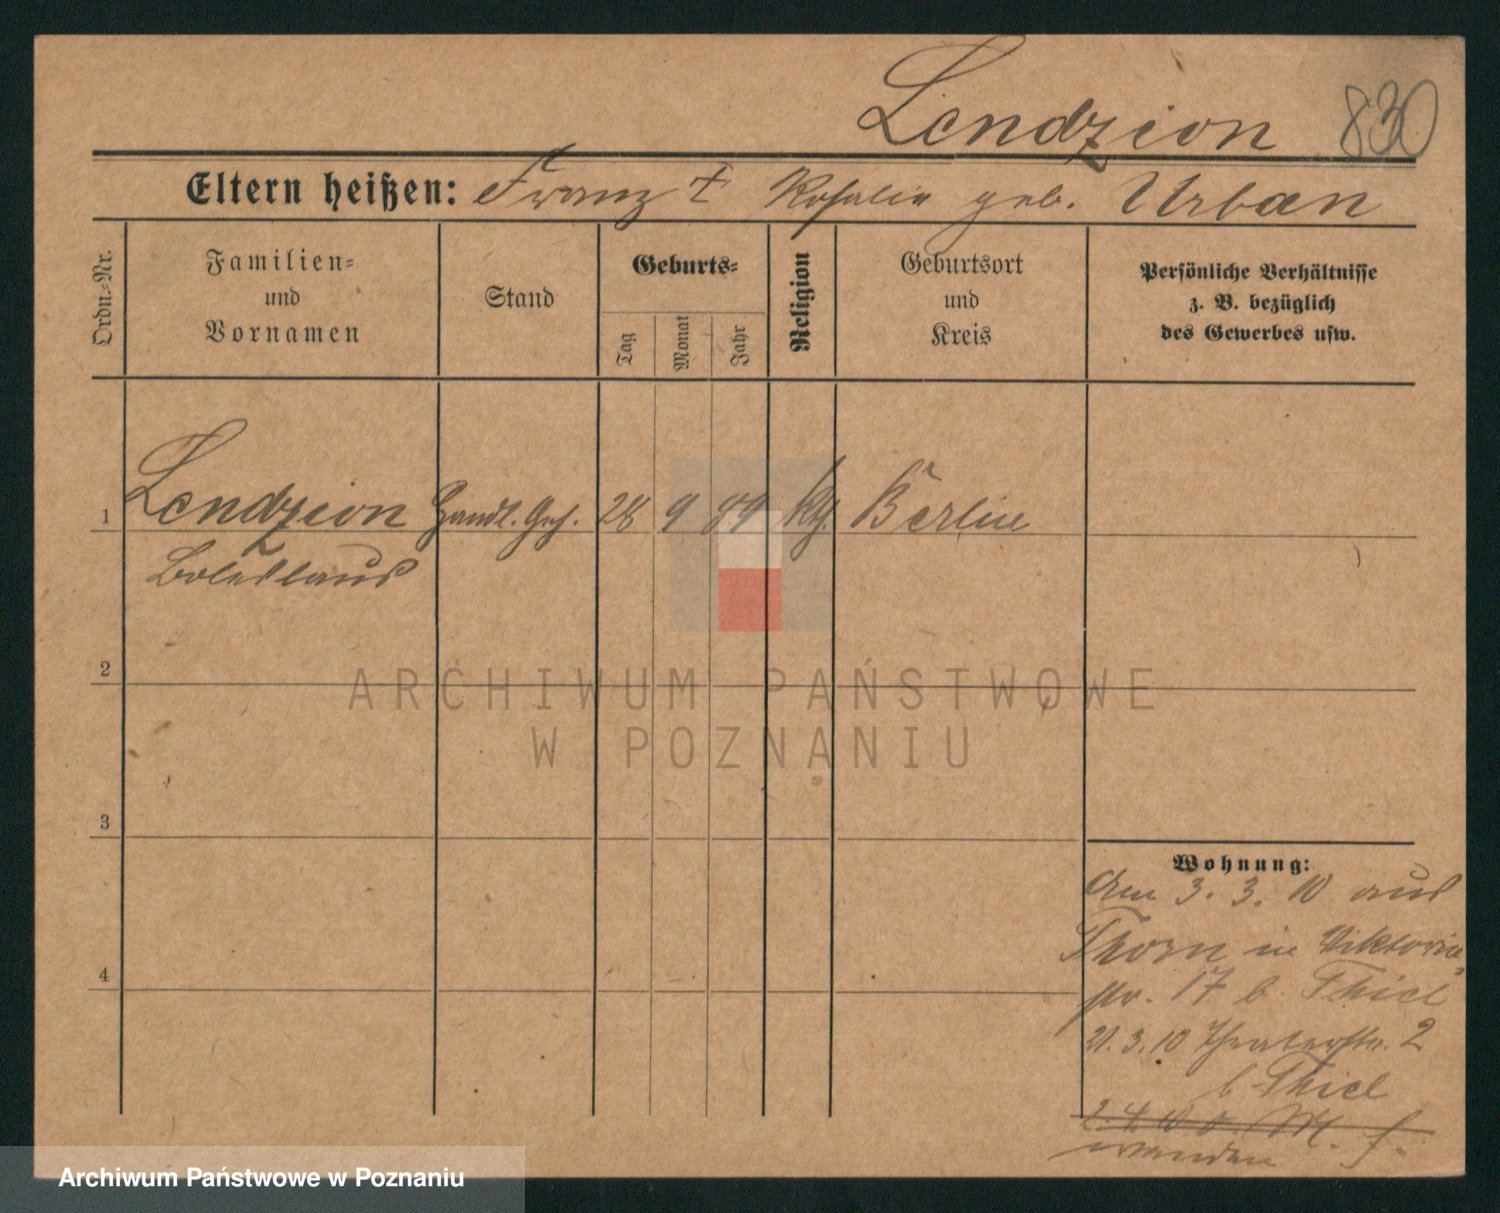 Lendzion 830
Eltern heißen: Franz † Rosalie geb. Urban
Ordn.-Nr.
Familien-
und
Vornamen
Stand
Geburts-
Tag
Monat
Jahr
Religion
Geburtsort
und
Kreis
Persönliche Verhältnisse
z. B. bezüglich
des Gewerbes usw.
1 Lendzion Handl. Geh. 28 9 89 Kth. Berlin
Boleslaus
2
3
4
Wohnung:
Am 3. 3. 10 aus
Thorn in Viktoria-
str. 17 b. Thiel
21. 3. 10 Theaterstr. 2
b. Thiel
2. 4. 10 o. M. f.
ARCHIWUM PAŃSTWOWE
W POZNANIU
Archiwum Państwowe w Poznaniu